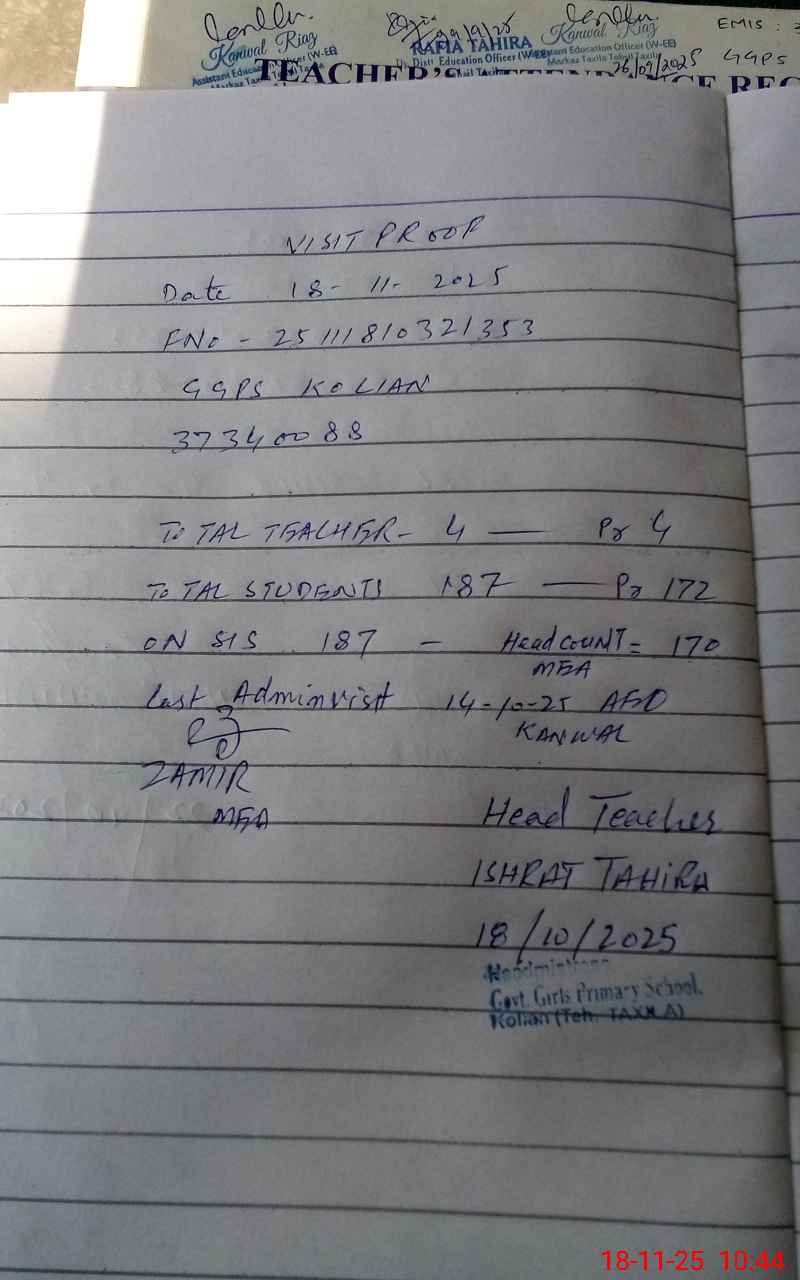 Kanwal Riaz
Assistant Education Officer (W-EE)
Markaz Taxila Tehsil Taxila
RAFIA TAHIRA
Dy. Distt. Education Officer (W-EE)
29/9/25
Kanwal Riaz
Assistant Education Officer (W-EE)
Markaz Taxila Tehsil Taxila
26/09/2025
EMIS :
GGPS
TEACHER'S ATTENDANCE REG
VISIT PROOF
Date 18-11-2025
FNo - 25111810321353
GGPS KOLIAN
37340088
TOTAL TEACHER - 4 — Pr 4
TOTAL STUDENTS 187 — Pr 172
ON SIS 187 - Head COUNT = 170
MEA
Last Admin visit 14-10-25 AEO
KANWAL
ZAMIR
MEA
Head Teacher
ISHRAT TAHIRA
18/10/2025
Headmistress
Govt. Girls Primary School,
Kolian (Teh. TAXILA)
18-11-25 10:44